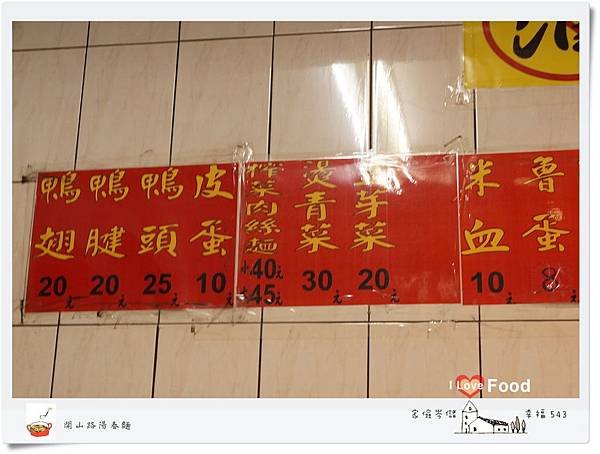 鴨翅
20元
鴨腱
20元
鴨頭
25元
皮蛋
10元
榨菜肉絲麵
小40元
大45元
燙青菜
30元
芽菜
20元
米血
10元
魯蛋
8元
油
I Love Food
開山路陽春麵
幸福 543